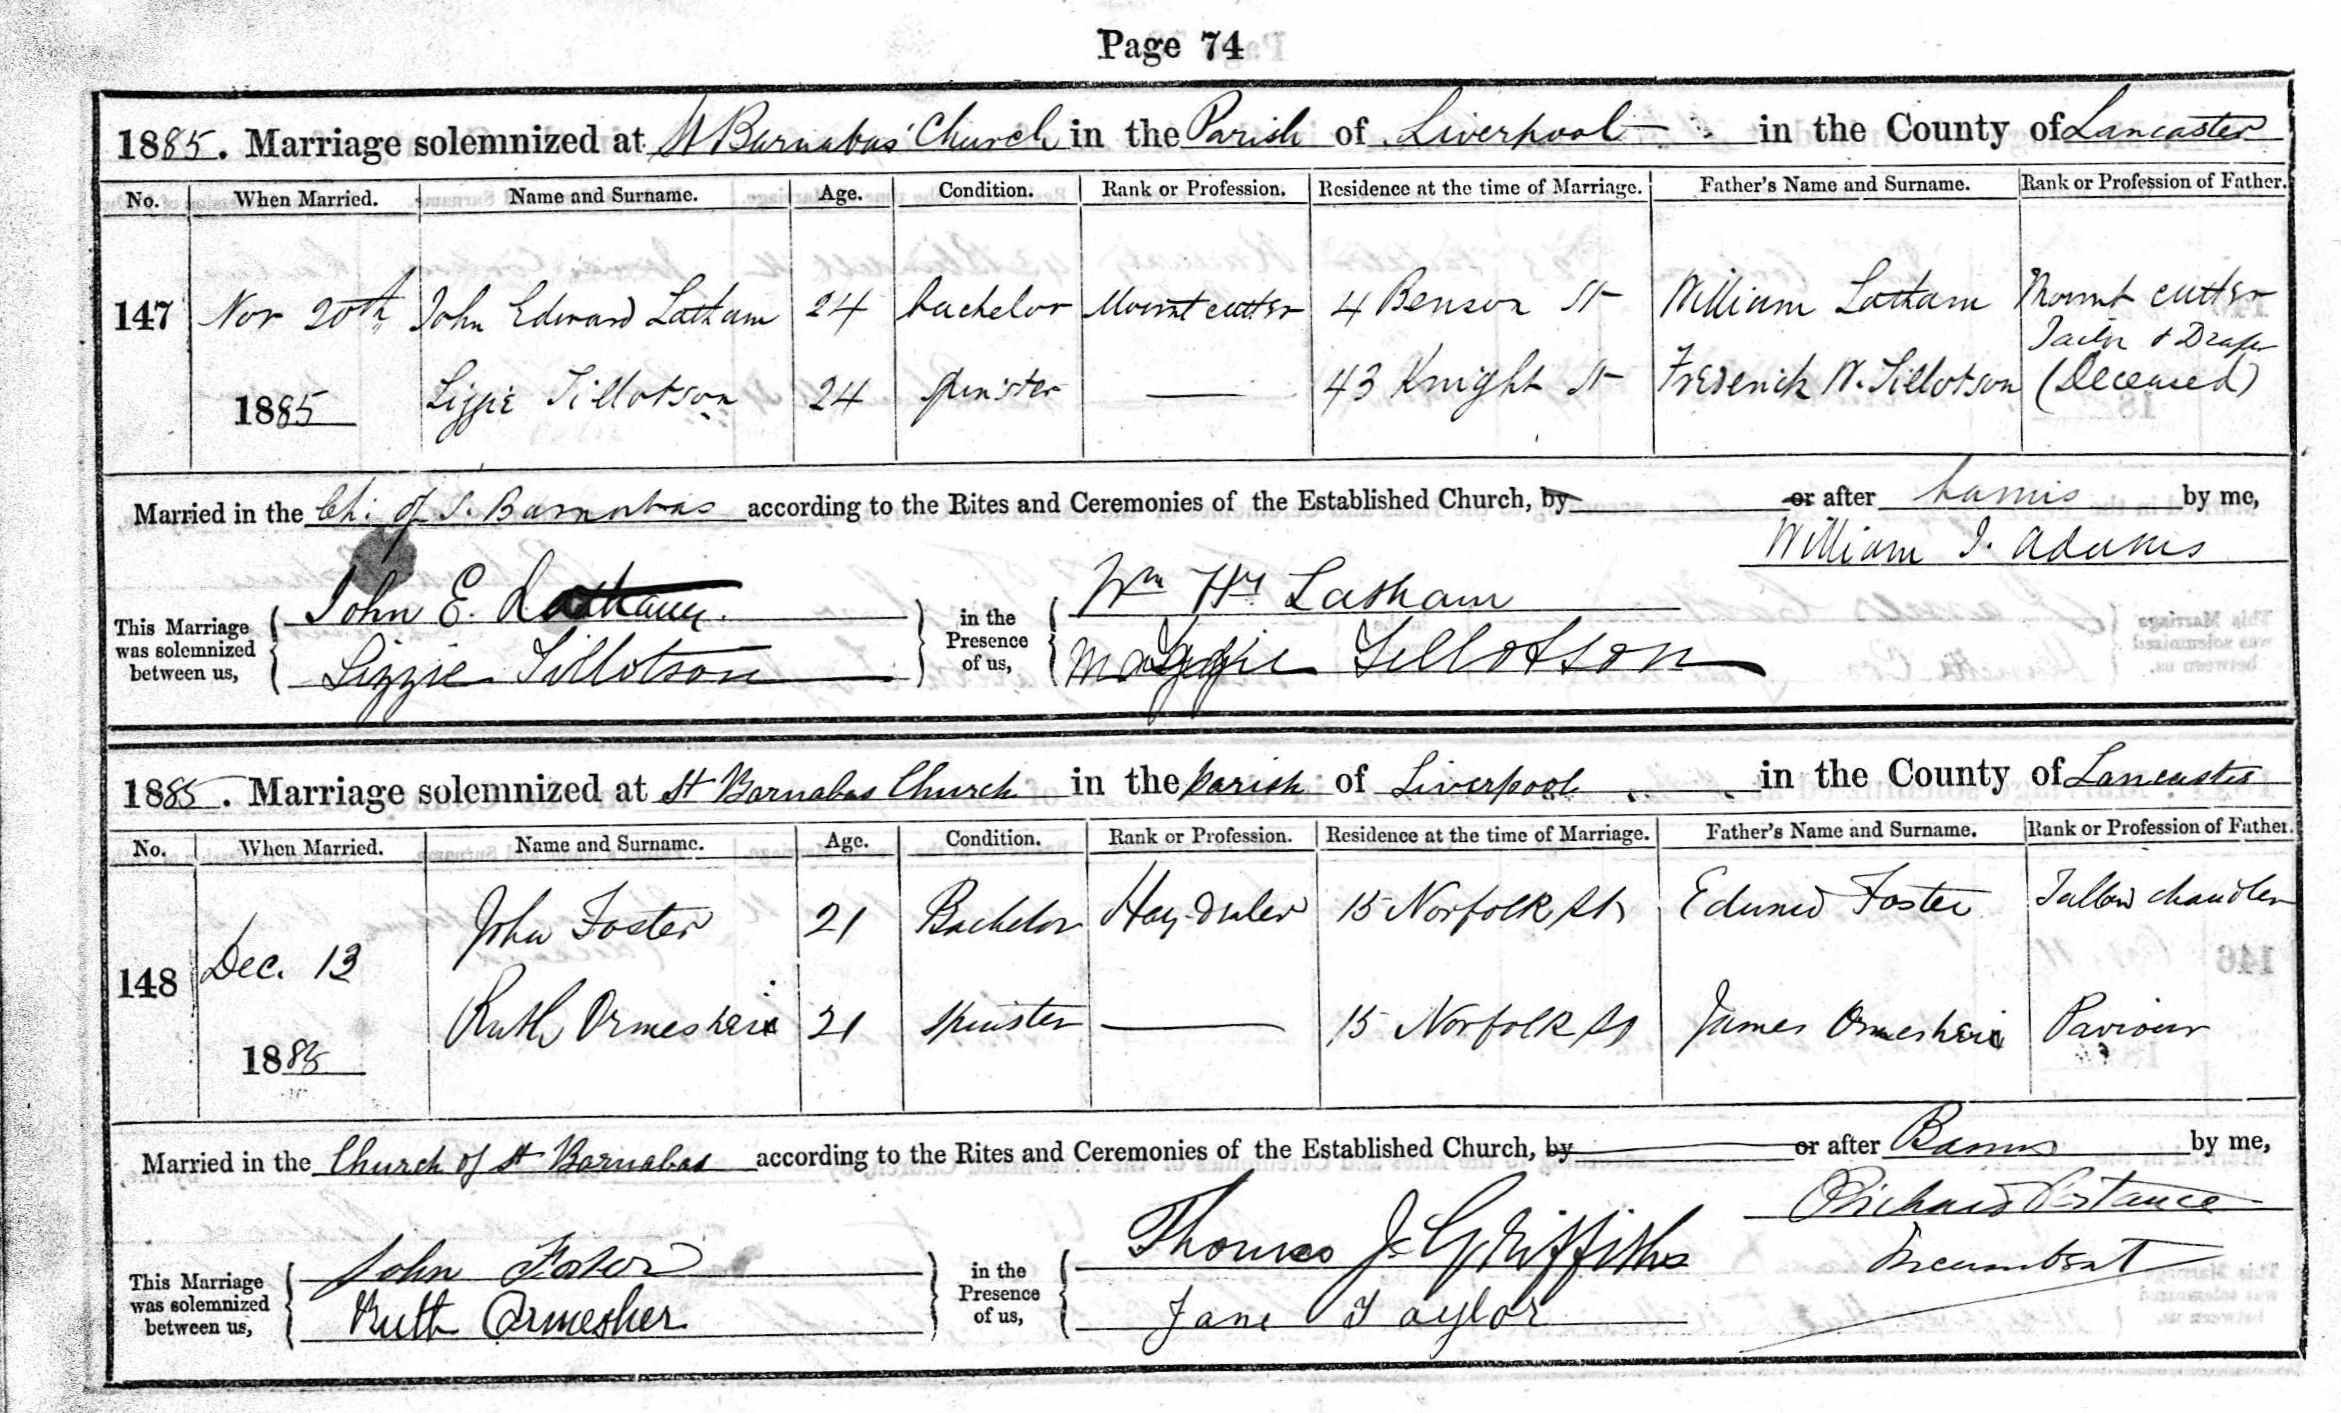 Page 74
1885. Marriage solemnized at St Barnabas' Church in the Parish of Liverpool in the County of Lancaster
No. When Married. Name and Surname. Age. Condition. Rank or Profession. Residence at the time of Marriage. Father's Name and Surname. Rank or Profession of Father.
147 Nov 20th John Edward Latham 24 bachelor Mount cutter 4 Benson St William Latham Mount cutter
Tailor & Draper
1885 Lizzie Tillotson 24 Spinster — 43 Knight St Frederick W. Tillotson (Deceased)
Married in the Ch: of S. Barnabas according to the Rites and Ceremonies of the Established Church, by or after banns by me,
William J. Adams
This Marriage was solemnized between us, John E. Latham in the Presence of us, Wm Hy Latham
Lizzie Tillotson Maggie Tillotson
1885. Marriage solemnized at St Barnabas Church in the parish of Liverpool in the County of Lancaster
No. When Married. Name and Surname. Age. Condition. Rank or Profession. Residence at the time of Marriage. Father's Name and Surname. Rank or Profession of Father.
148 Dec. 13 John Foster 21 Bachelor Hay-dealer 15 Norfolk St Edward Foster Tallow chandler
1885 Ruth 21 Spinster — 15 Norfolk St James Paviour
Married in the Church of St Barnabas according to the Rites and Ceremonies of the Established Church, by or after Banns by me,
Richard Postance
Incumbent
This Marriage was solemnized between us, John Foster in the Presence of us, Thomas J. Griffiths
Ruth Ormesher Jane Taylor